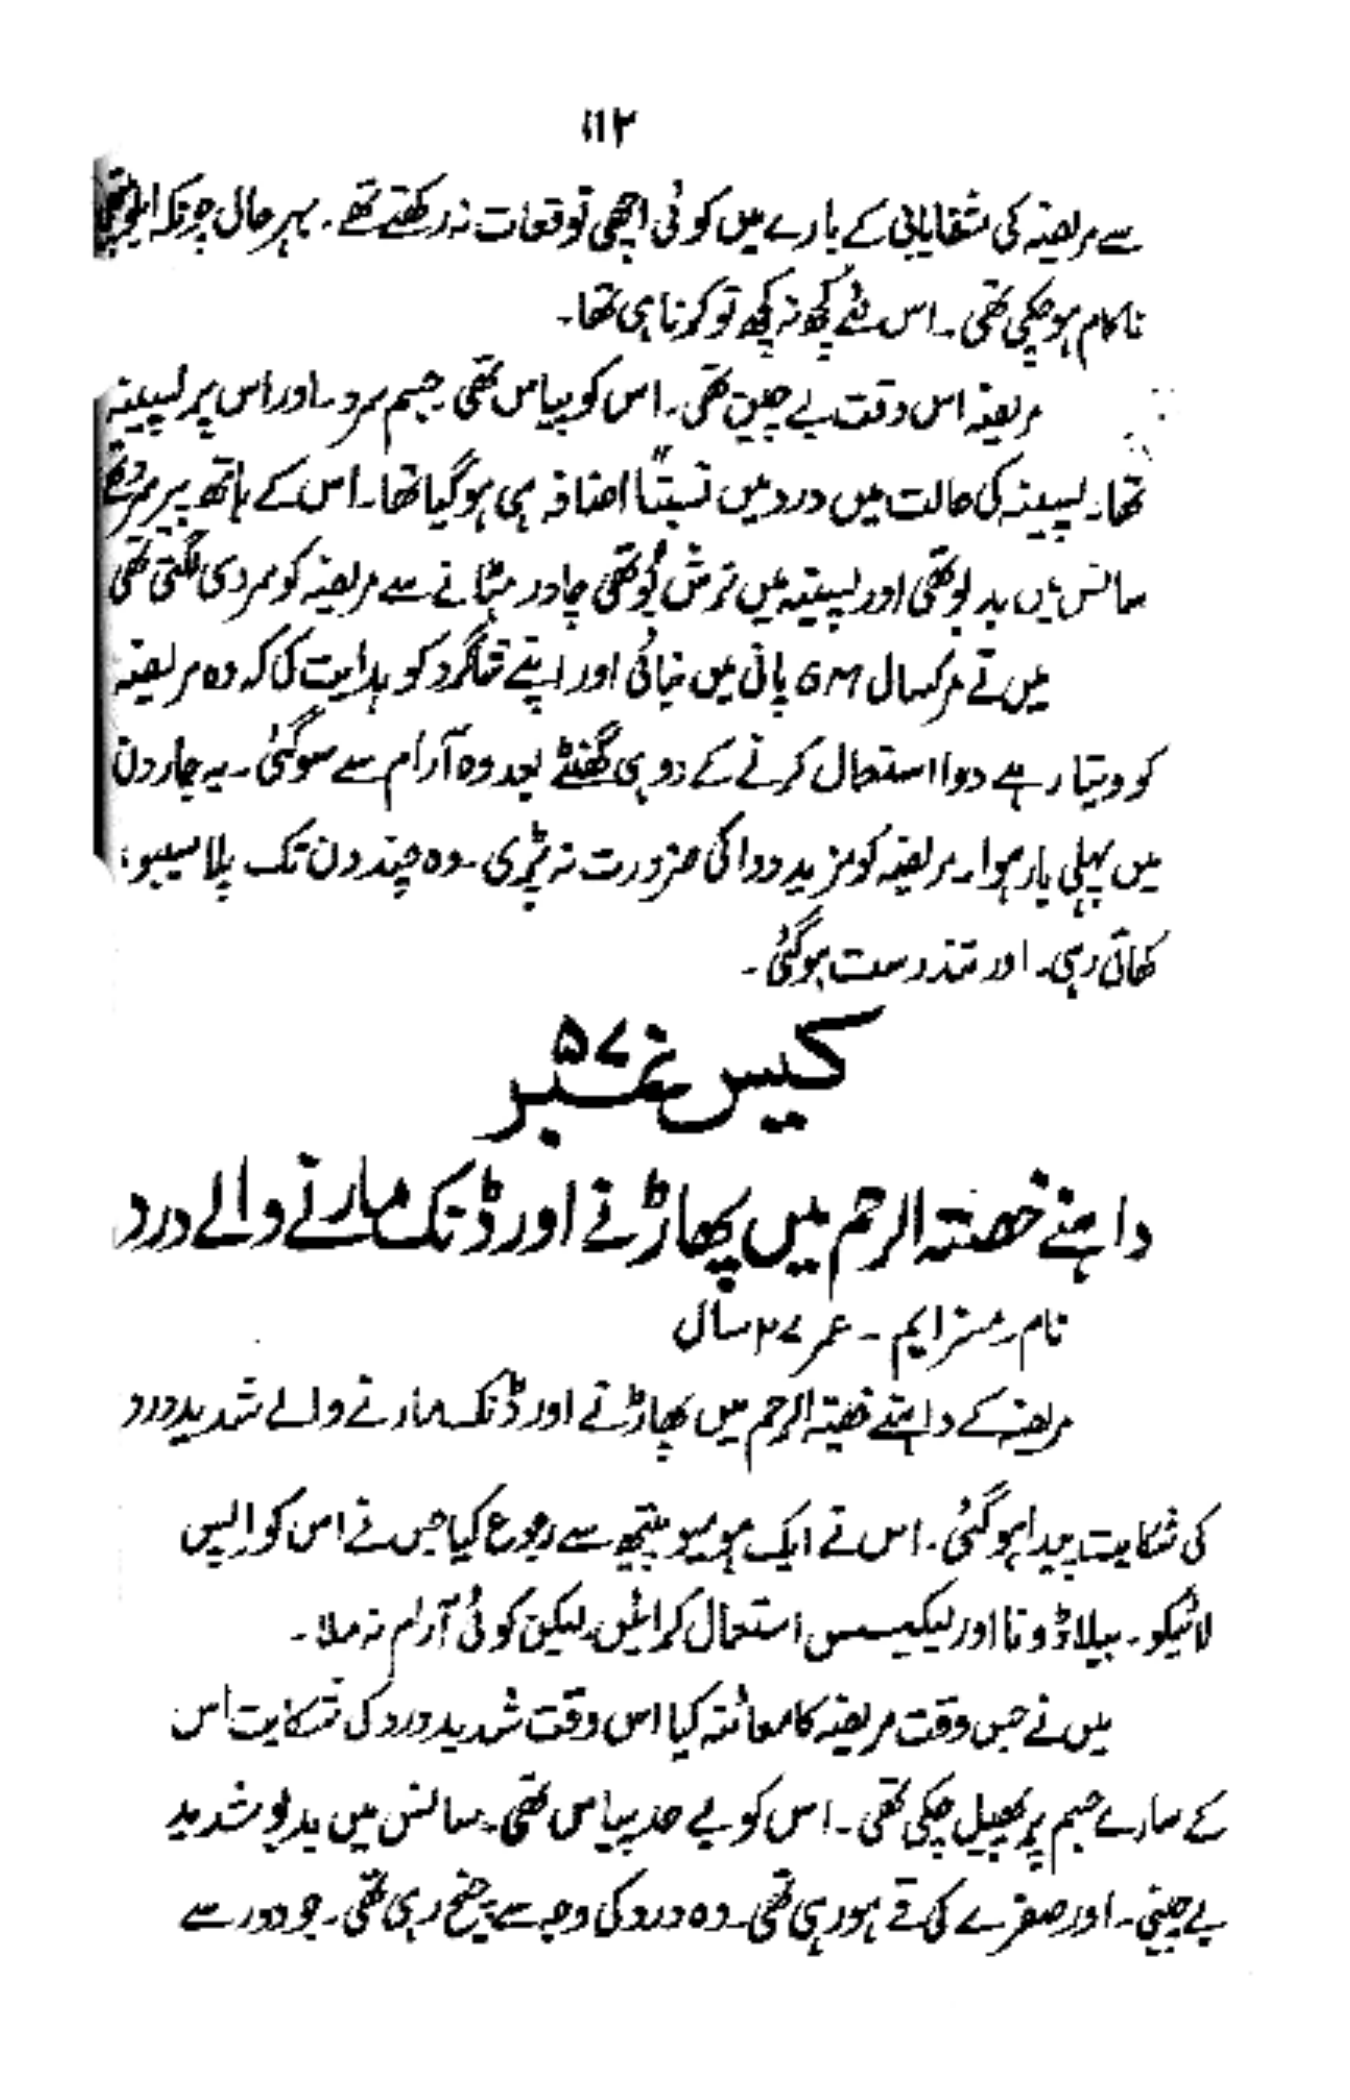 ۱۱۲
سے مریضہ کی شفایابی کے بارے میں کوئی اچھی توقعات نہ رکھتے تھے۔ بہر حال چونکہ ایلوپیتھی
ناکام ہو چکی تھی۔ اس لئے کچھ نہ کچھ تو کرنا ہی تھا۔
مریضہ اس وقت بے چین تھی۔ اس کو پیاس تھی جسم سرد۔ اور اس پر پسینہ
تھا۔ پسینہ کی حالت میں درد میں نسبتاً اضافہ ہی ہو گیا تھا۔ اس کے ہاتھ پیر سرد تھے
سانس میں بدبو تھی اور پسینہ میں ترش بُو تھی چادر ہٹانے سے مریضہ کو سردی لگتی تھی
میں نے مرکسال 6M پانی میں بنائی اور اپنے شاگرد کو ہدایت کی کہ وہ مریضہ
کو دیتا رہے دوا استعمال کرنے کے دو ہی گھنٹے بعد وہ آرام سے سو گئی۔ یہ چار دن
میں پہلی بار ہوا۔ مریضہ کو مزید دوا کی ضرورت نہ پڑی۔ وہ چند دن تک پلاسیبو
کھاتی رہی۔ اور تندرست ہو گئی۔
کیس نمبر ۵۷
داہنے خصتہ الرحم میں پھاڑنے اور ڈنک مارنے والے درد
نام۔ مسز ایم۔ عمر ۲۷ سال
مریضہ کے داہنے خصیتہ الرحم میں پھاڑنے اور ڈنک مارنے والے شدید درد
کی شکایت پیدا ہو گئی۔ اس نے ایک ہومیوپیتھ سے رجوع کیا جس نے اس کو ایپس
لائیکو۔ بیلاڈونا اور لیکیسس استعمال کرائیں لیکن کوئی آرام نہ ملا۔
میں نے جس وقت مریضہ کا معائنہ کیا اس وقت شدید درد کی شکایت اس
کے سارے جسم پر پھیل چکی تھی۔ اس کو بے حد پیاس تھی۔ سانس میں بدبو شدید
بے چینی۔ اور صفرے کی قے ہو رہی تھی۔ وہ درد کی وجہ سے چیخ رہی تھی۔ جو دور سے